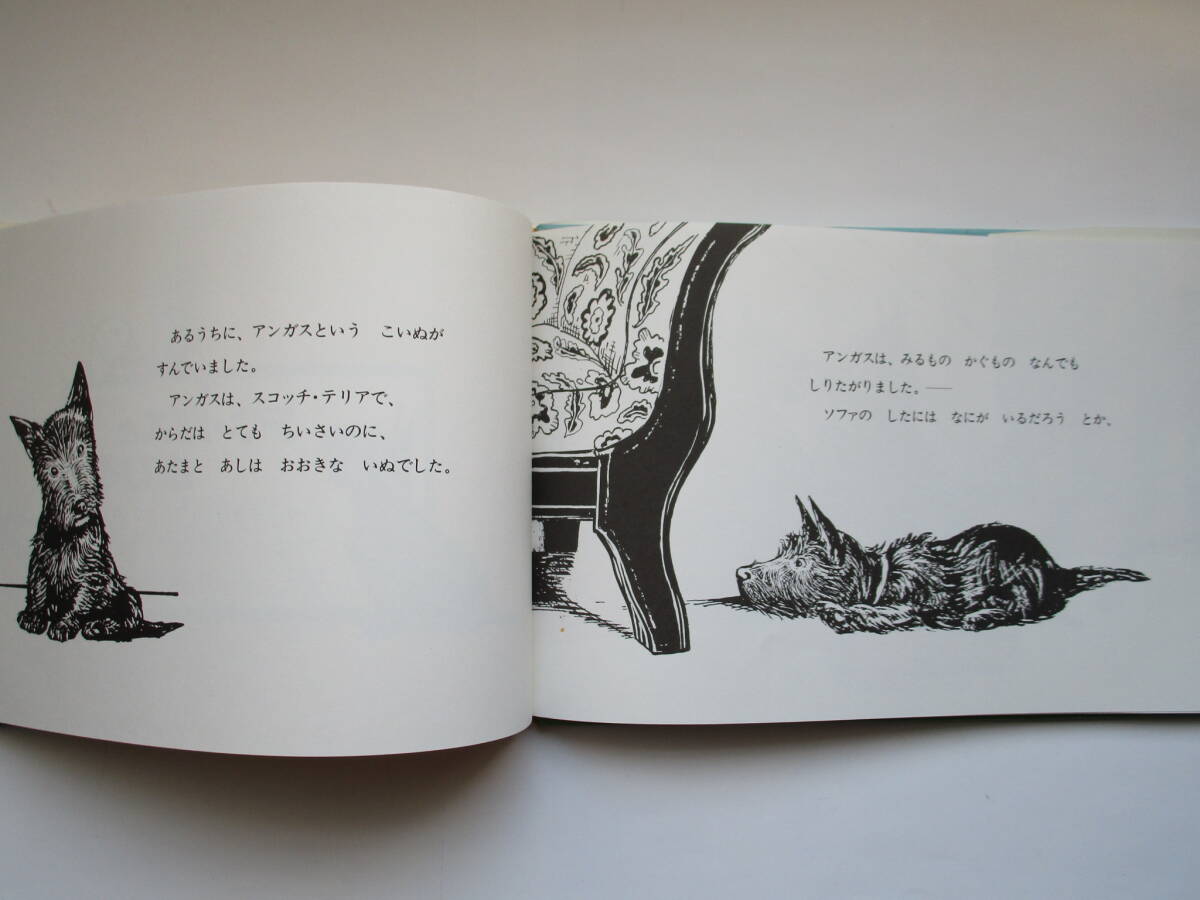 あるうちに、アンガスという　こいぬが
すんでいました。
アンガスは、スコッチ・テリアで、
からだは　とても　ちいさいのに、
あたまと　あしは　おおきな　いぬでした。
アンガスは、みるもの　かぐもの　なんでも
しりたがりました。――
ソファの　したには　なにが　いるだろう　とか、